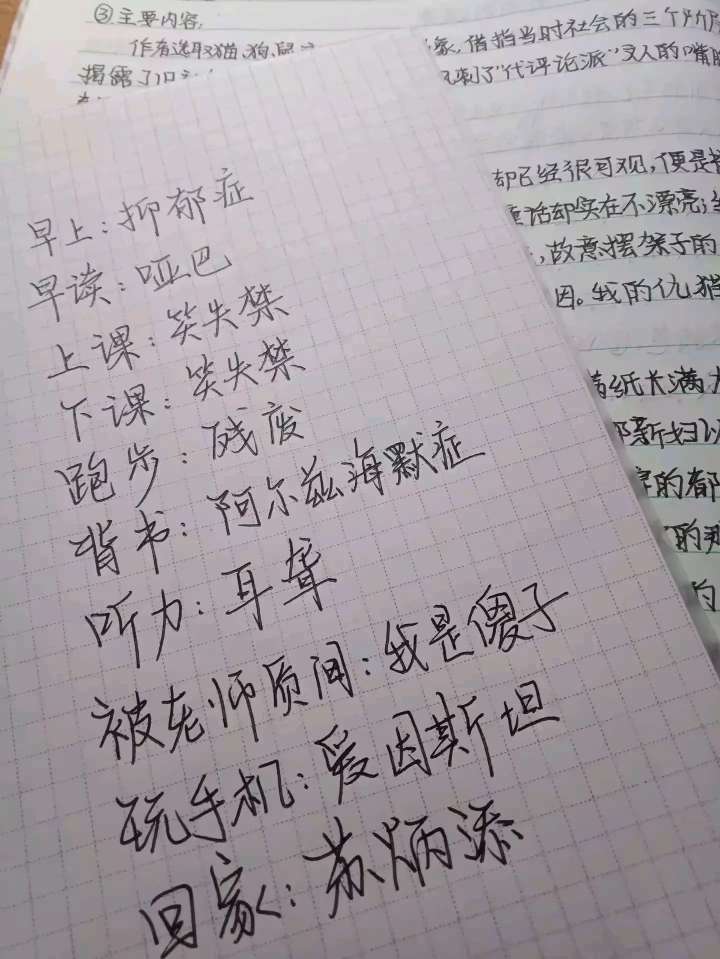 ③主要内容
作者选取猫、狗、鼠
象,借指当时社会的三个
揭露了
刺了"代评论派"文人的嘴脸
却已经很可观,便是
话却实在不漂亮;
,故意摆架子的
因。我的仇猫
早上:抑郁症
早读:哑巴
上课:笑失禁
下课:笑失禁
跑步:残废
背书:阿尔兹海默症
听力:耳聋
被老师质问:我是傻子
玩手机:爱因斯坦
回家:苏炳添
纸长满
新妇
的都
的